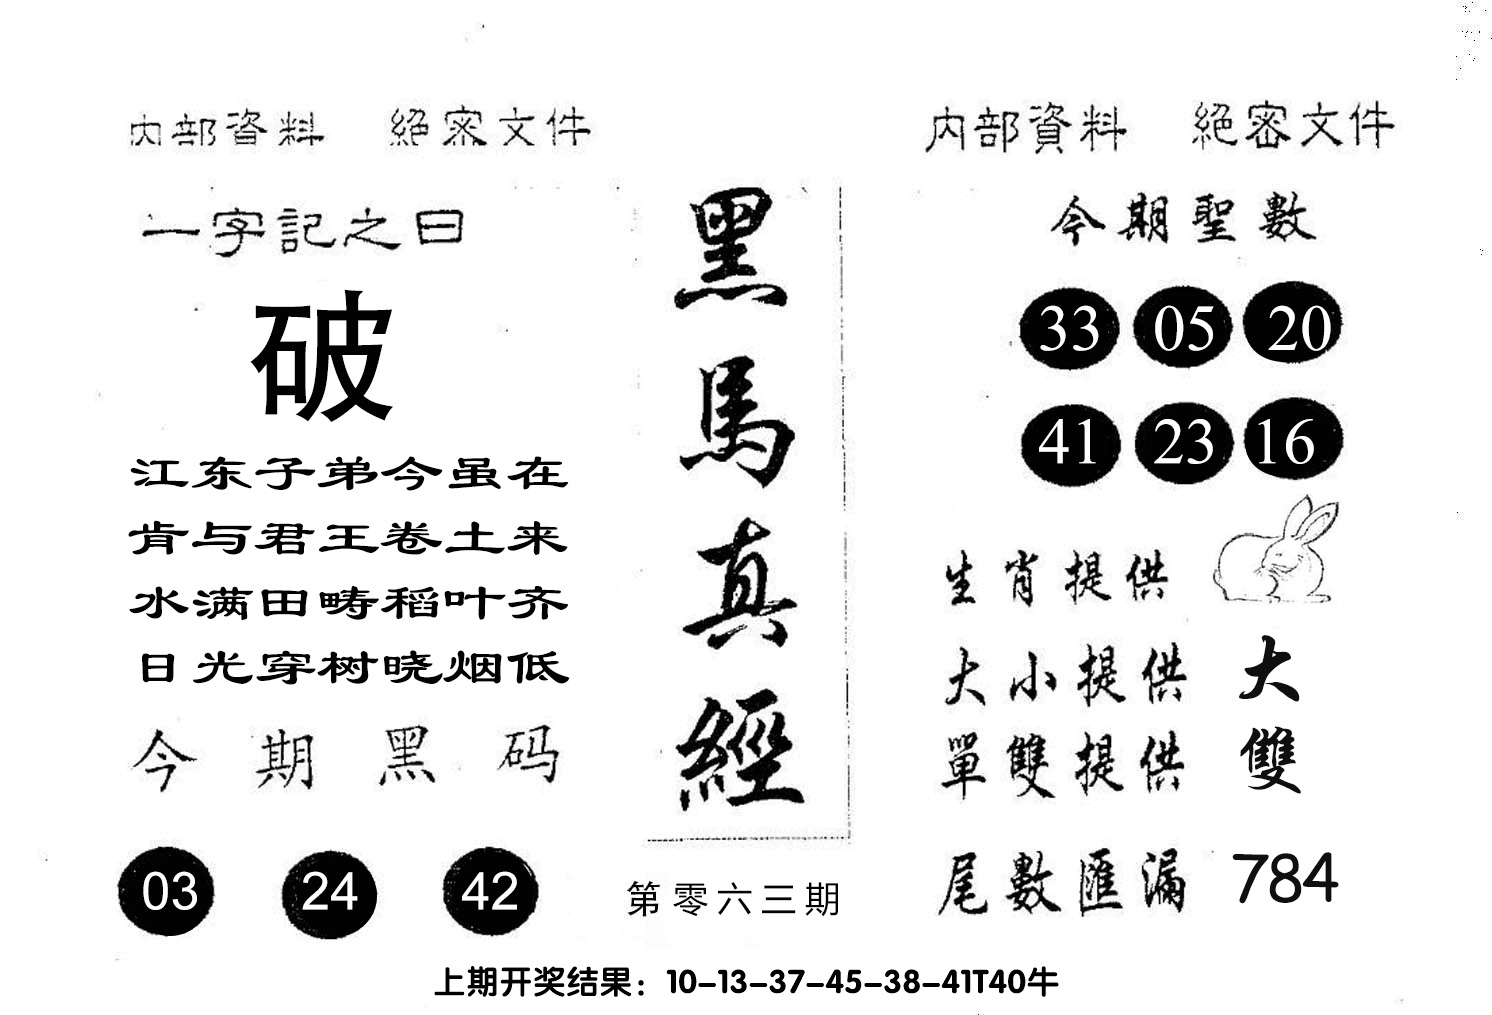 内部資料 絕密文件
一字記之曰
破
江东子弟今虽在
肯与君王卷土来
水满田畴稻叶齐
日光穿树晓烟低
今期黑码
03 24 42
黑馬真經
第零六三期
内部資料 絕密文件
今期聖數
33 05 20
41 23 16
生肖提供
大小提供 大
單雙提供 雙
尾數匯漏 784
上期开奖结果：10-13-37-45-38-41T40牛